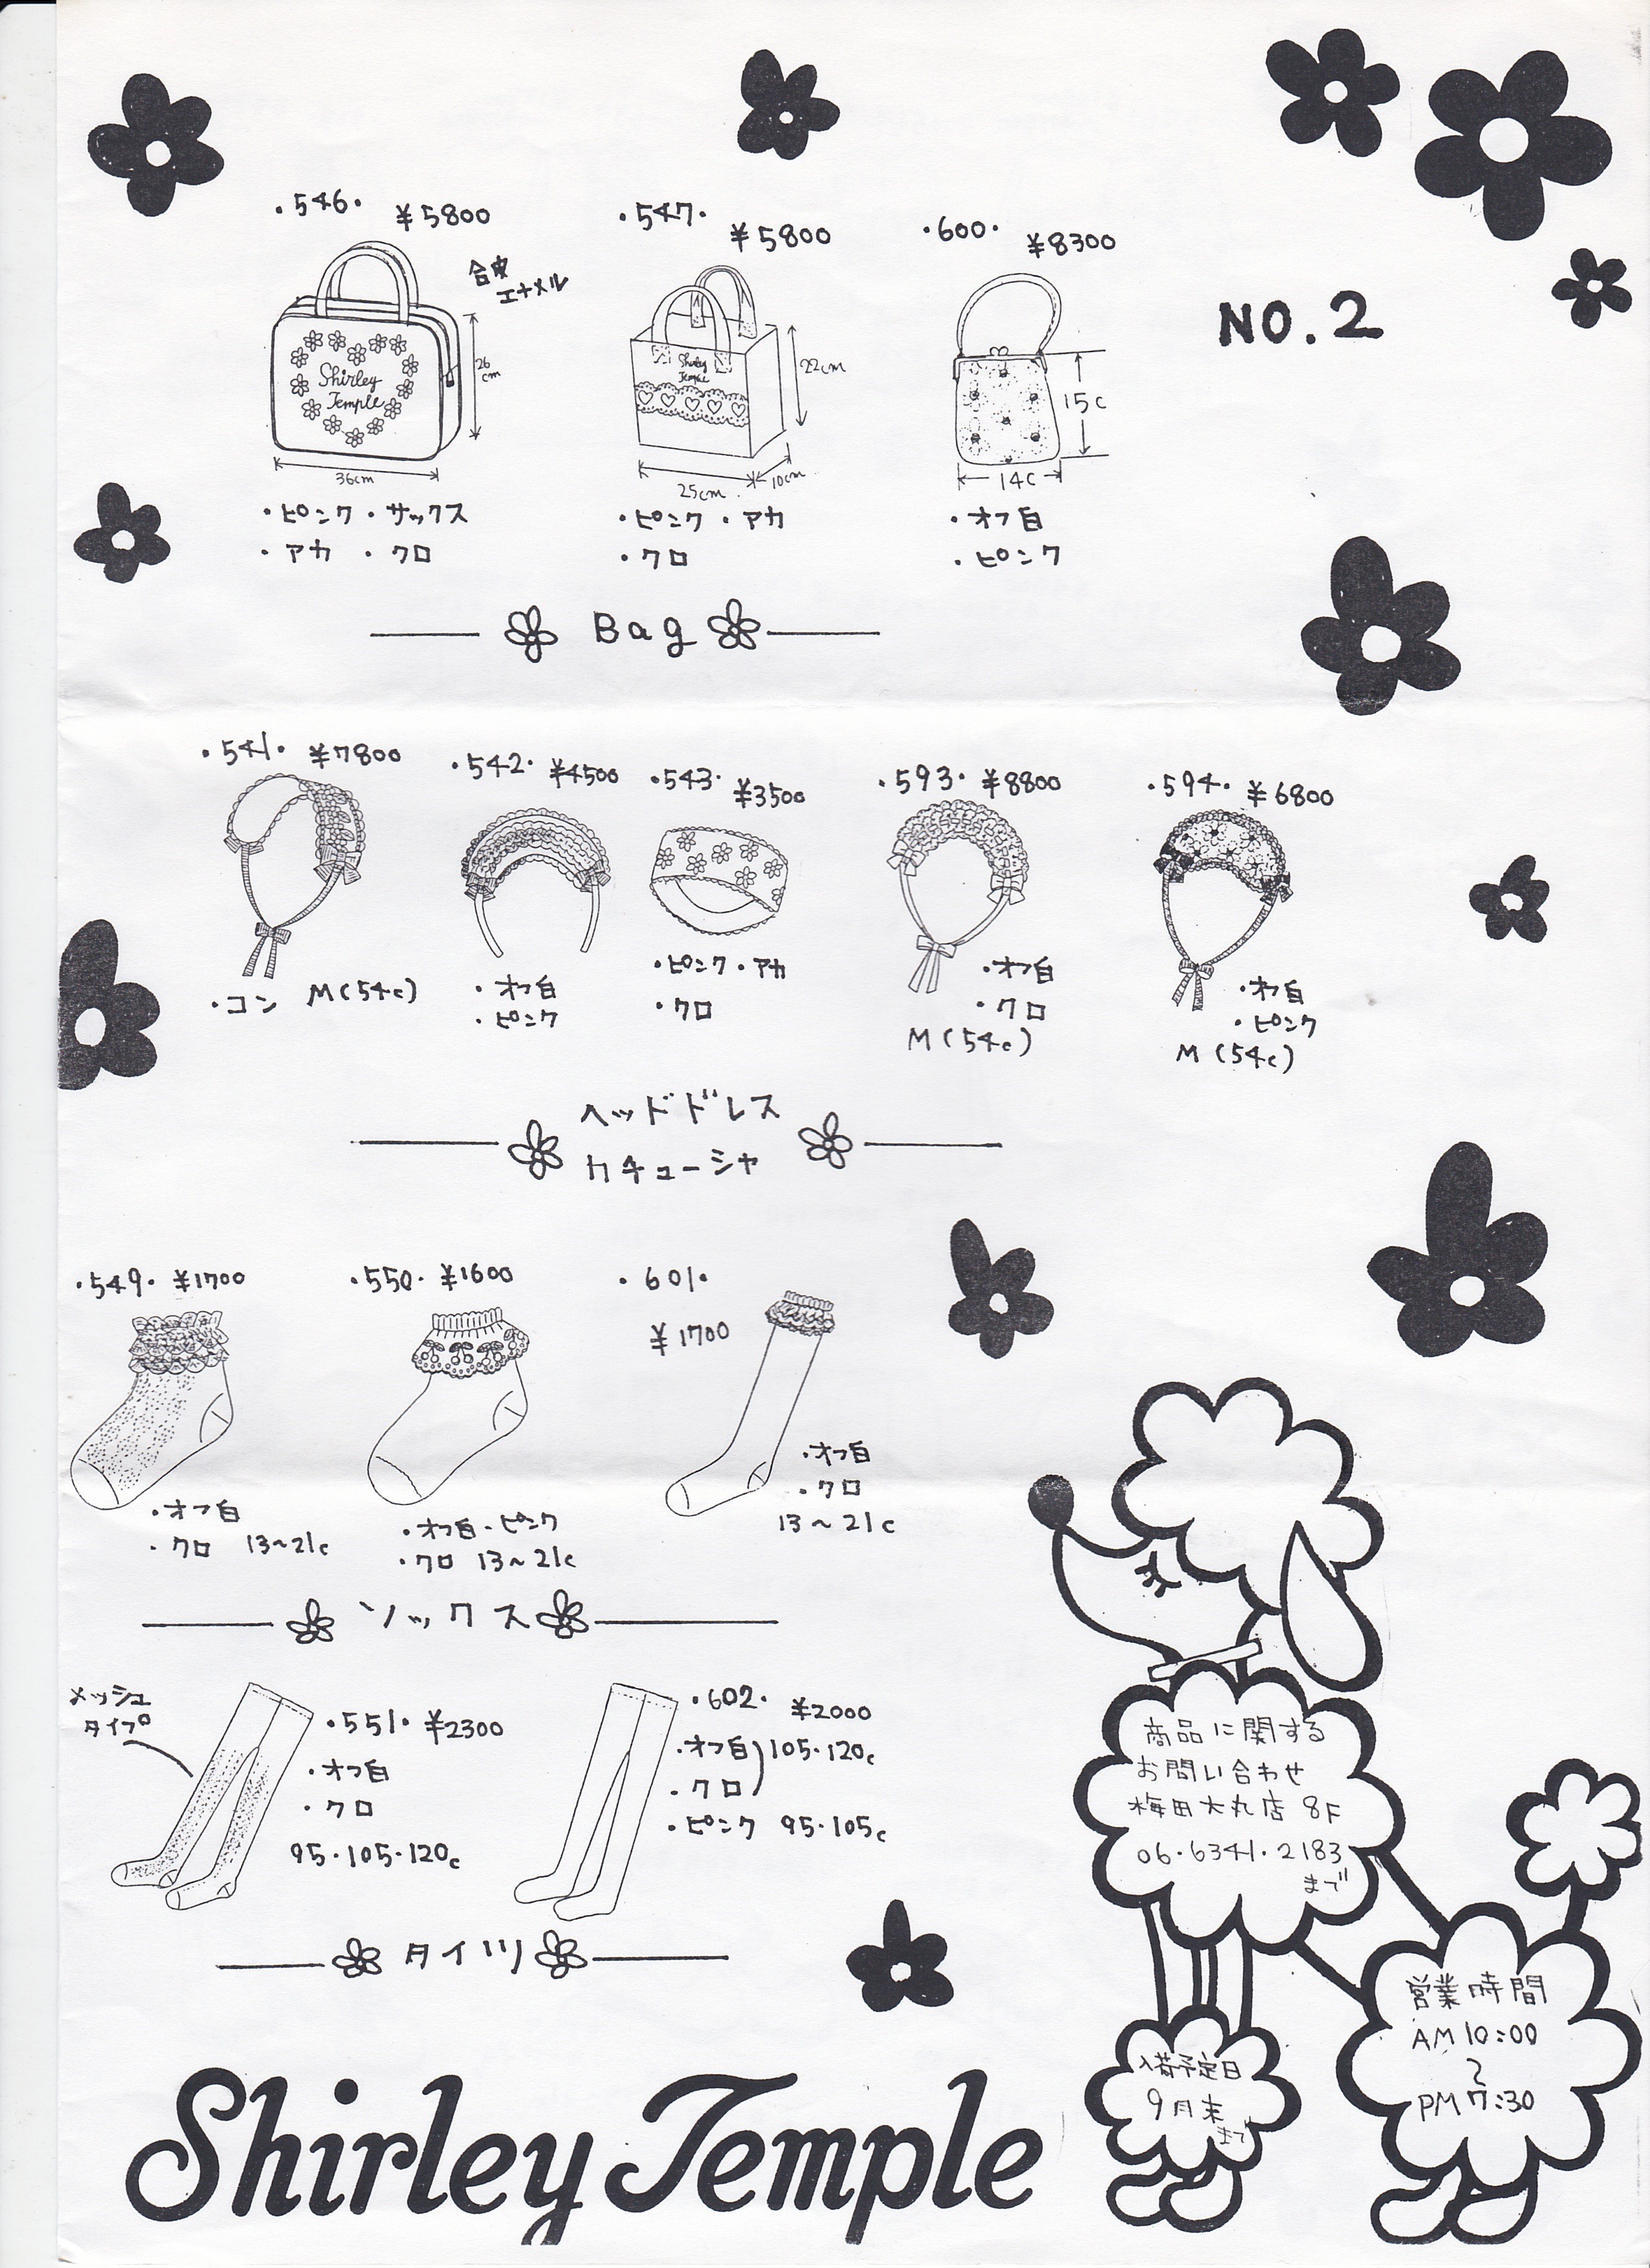 ・546・ ¥5800
合皮
エナメル
Shirley
Temple
26
cm
36cm
・ピンク ・サックス
・アカ ・クロ
・547・
¥5800
Shirley
Temple
22cm
25cm
10cm
・ピンク ・アカ
・クロ
・600・
¥8300
15c
14c
・オフ白
・ピンク
NO.2
Bag
・541・ ¥7800
・コン M(54c)
・542・ ¥4500
・オフ白
・ピンク
・543・
¥3500
・ピンク・アカ
・クロ
・593・ ¥8800
・オフ白
・クロ
M(54c)
・594・ ¥6800
・オフ白
・ピンク
M(54c)
ヘッドドレス
カチューシャ
・549・ ¥1700
・オフ白
・クロ 13~21c
・550・ ¥1600
・オフ白・ピンク
・クロ 13~21c
・601・
¥1700
・オフ白
・クロ
13~21c
ソックス
メッシュ
タイプ
・551・ ¥2300
・オフ白
・クロ
95・105・120c
・602・ ¥2000
・オフ白)105・120c
・クロ
・ピンク 95・105c
タイツ
商品に関する
お問い合わせ
梅田大丸店 8F
06・6341・2183
まで
営業時間
AM10:00
~
PM7:30
入荷予定日
9月末
まで
Shirley Temple